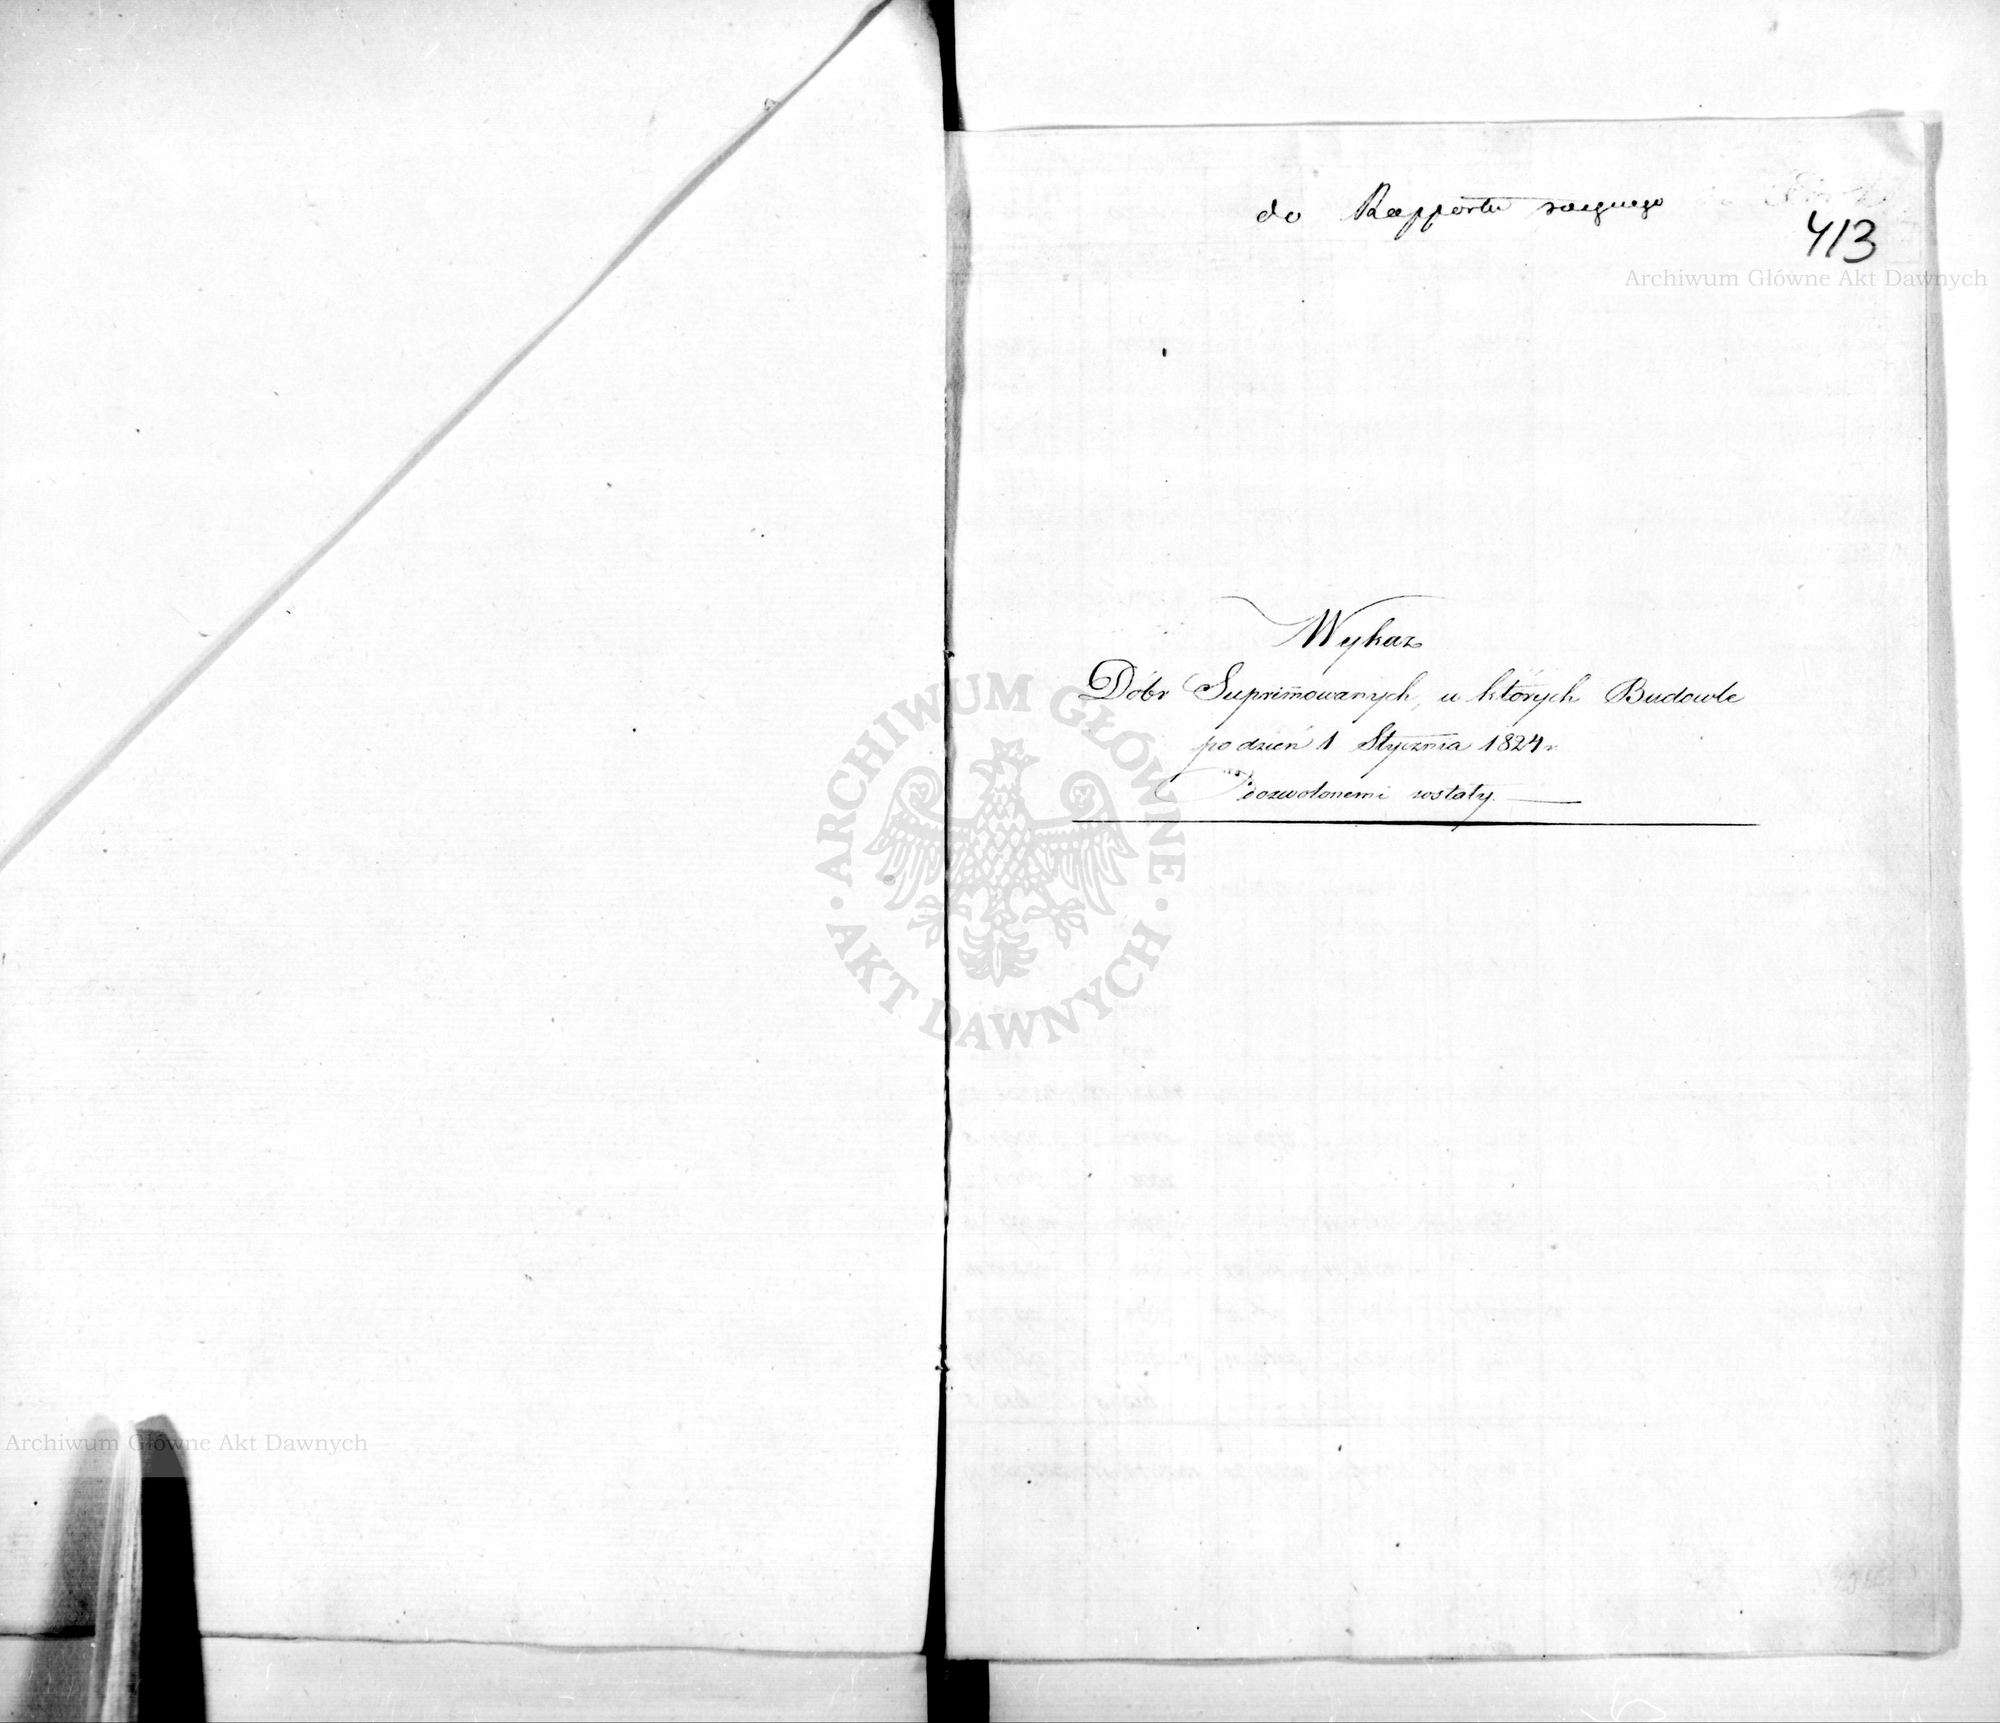 do Rapportu rocznego
413
Archiwum Główne Akt Dawnych
Wykaz
Dóbr Suprimowanych, w których Budowle
po dzień 1 Stycznia 1824 r.
Pozwolonemi zostały.
ARCHIWUM GŁÓWNE
AKT DAWNYCH
Archiwum Główne Akt Dawnych